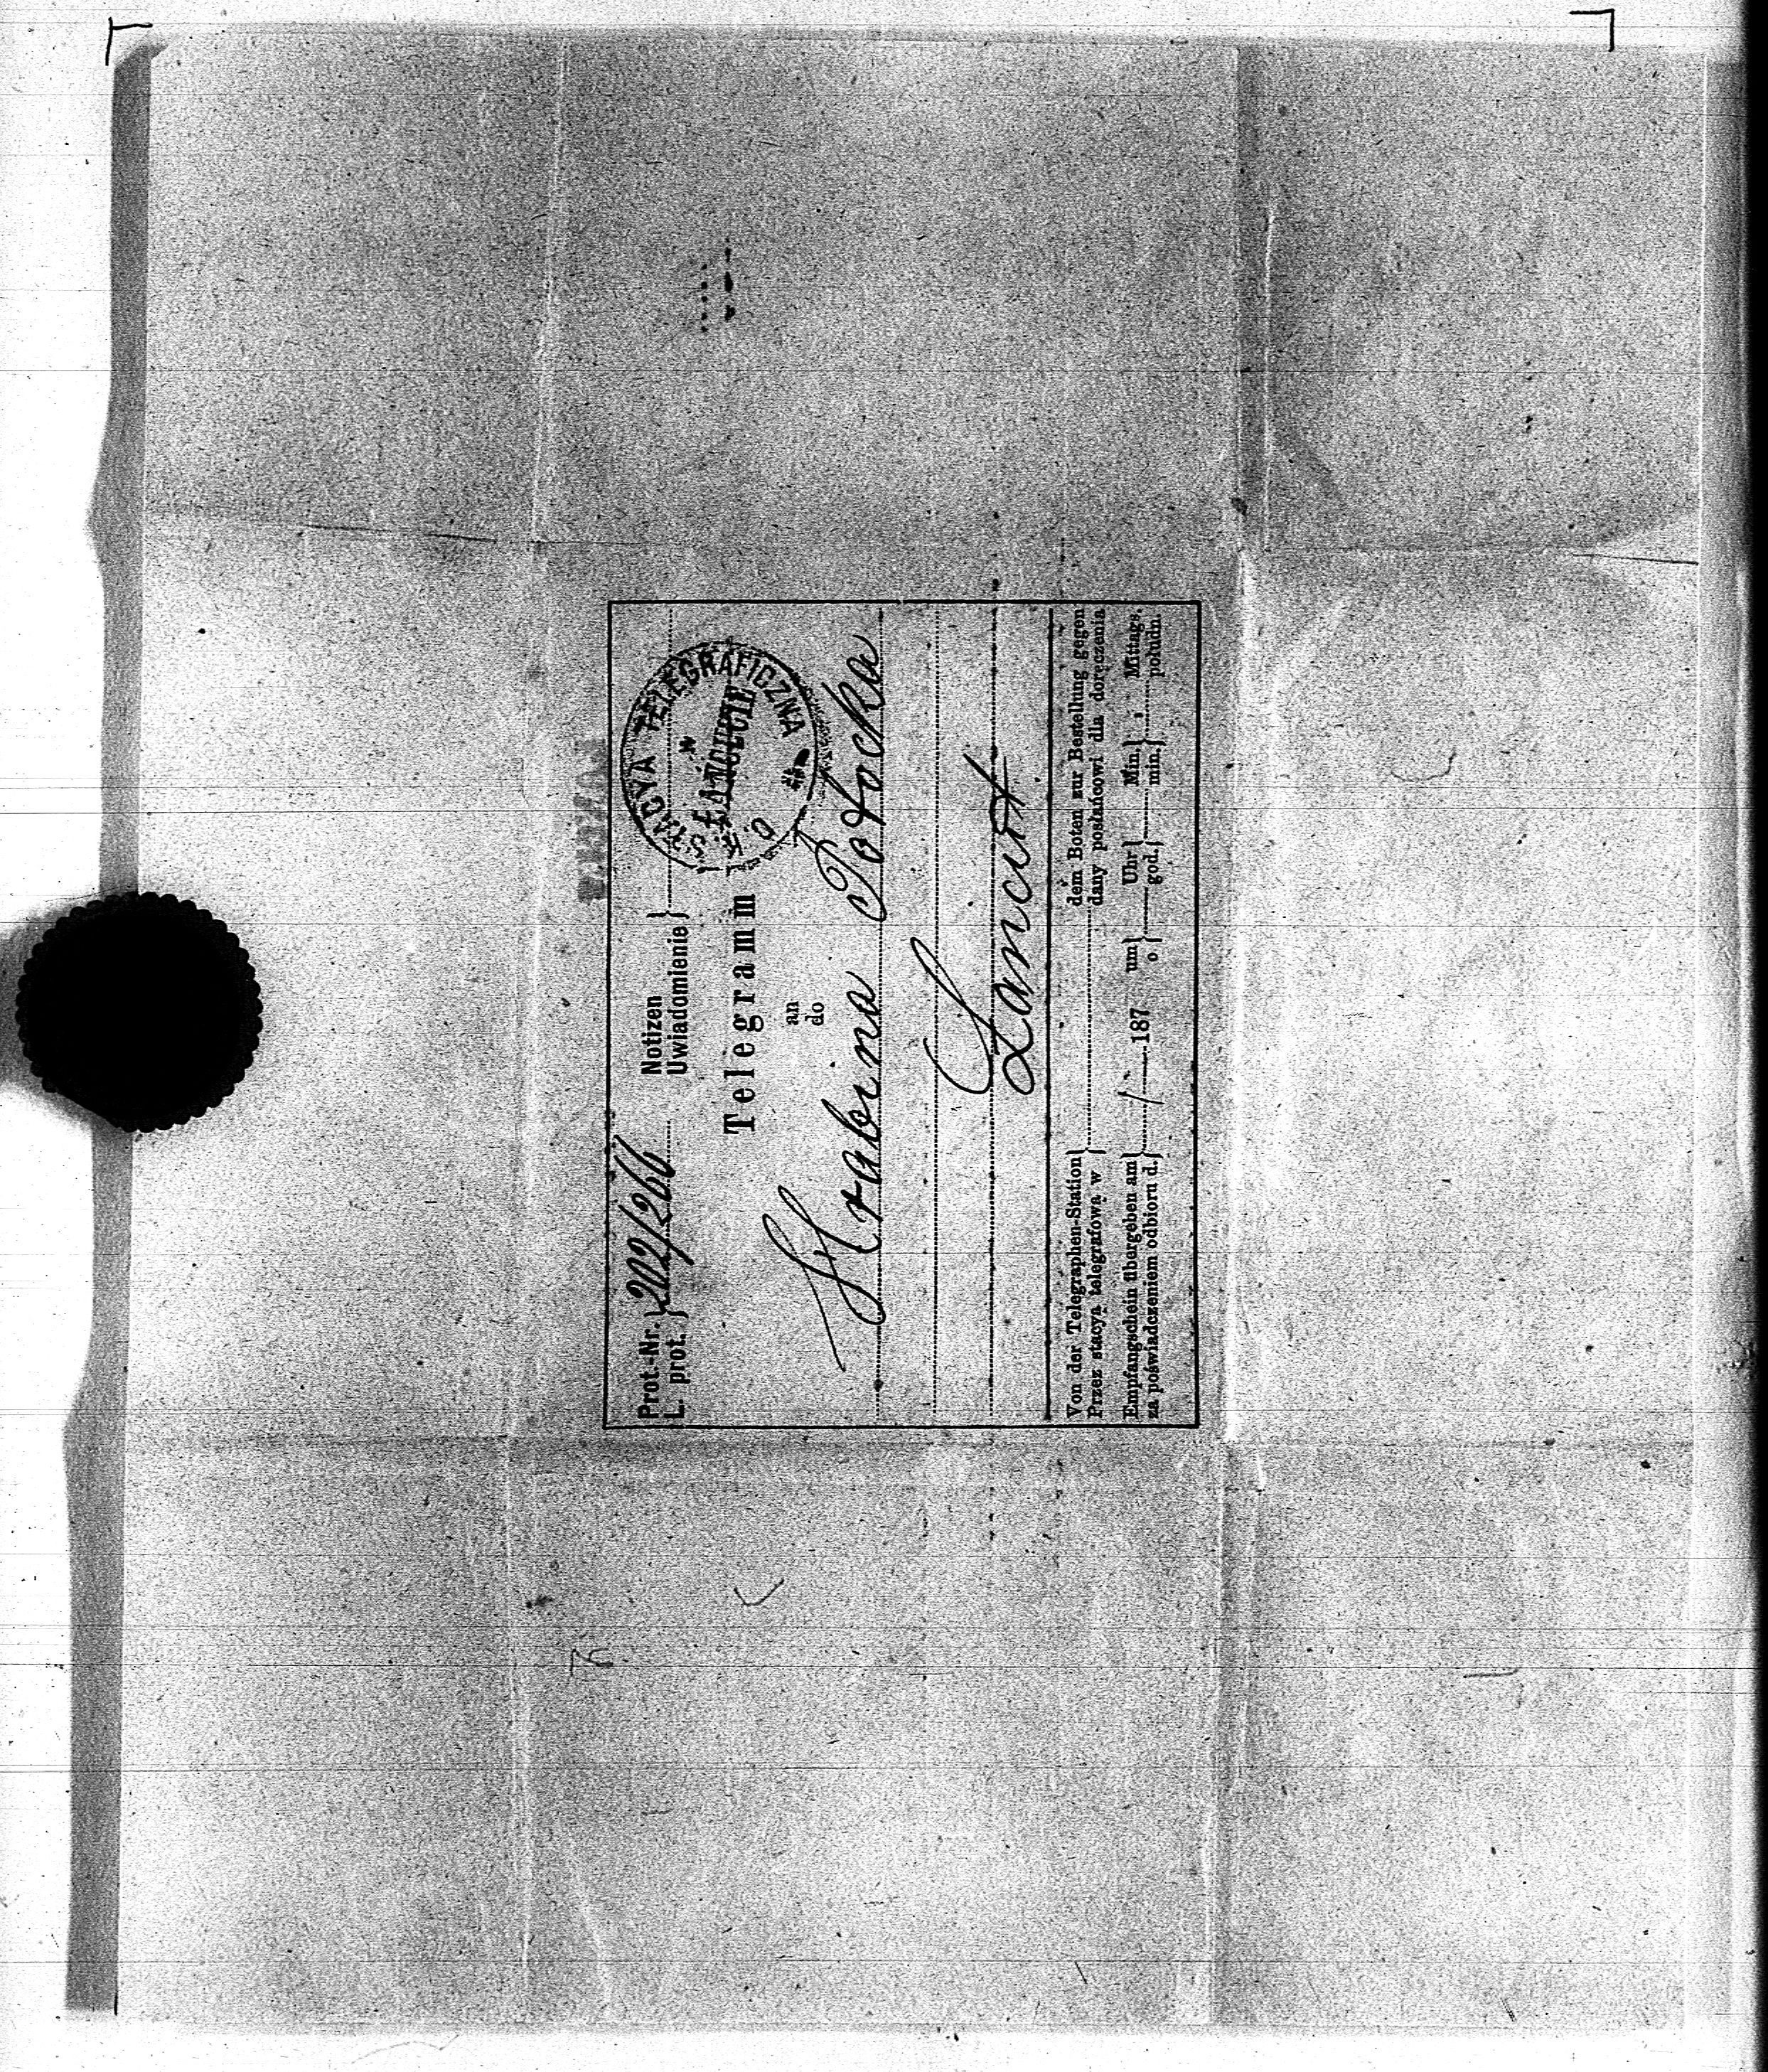 Prot.-Nr. } 202/266 Notizen }
L. prot. } Uwiadomienie }
STACYA TELEGRAFICZNA
W ŁAŃCUCIE
Telegramm
an
do
Hrabina Potocka
Łancut
Von der Telegraphen-Station } dem Boten zur Bestellung gegen
Przez stacyą telegrafową w } dany posłańcowi dla doręczenia
Empfangschein übergeben am } / 187 um } Uhr } Min. } Mittags.
za poświadczeniem odbioru d. } o } god. } min. } połudn.